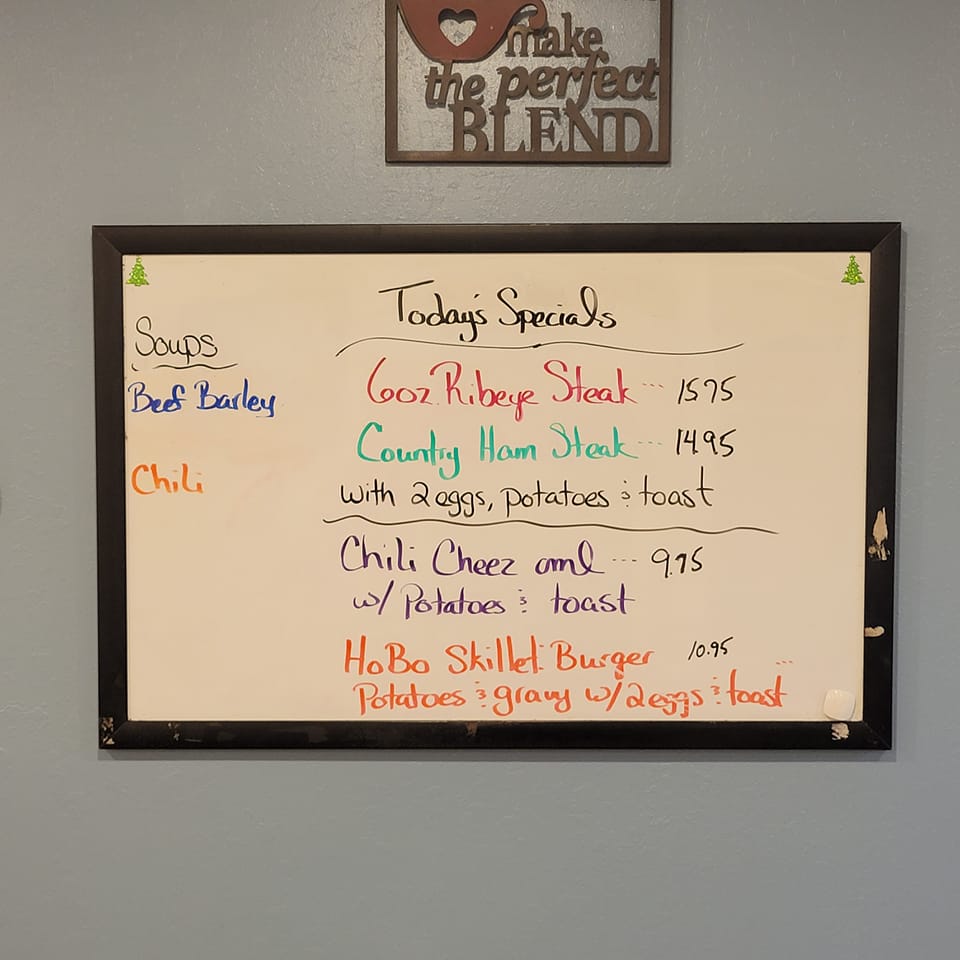 make
the perfect
BLEND
Today's Specials
Soups
Beef Barley
Chili
6oz Ribeye Steak ... 1595
Country Ham Steak ... 1495
with 2 eggs, potatoes & toast
Chili Cheez oml ... 9.95
w/ Potatoes & toast
HoBo Skillet: Burger 10.95
Potatoes & gravy w/ 2 eggs & toast ...